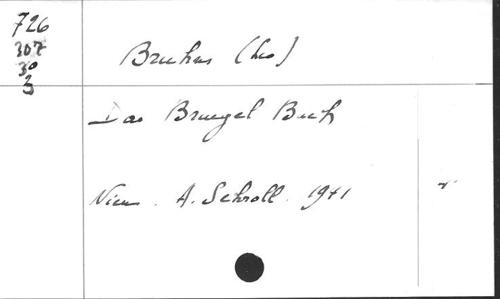 726
307
30
3
Bruhns (Leo)
Das Bruegel Buch
Wien. A. Schroll. 1941